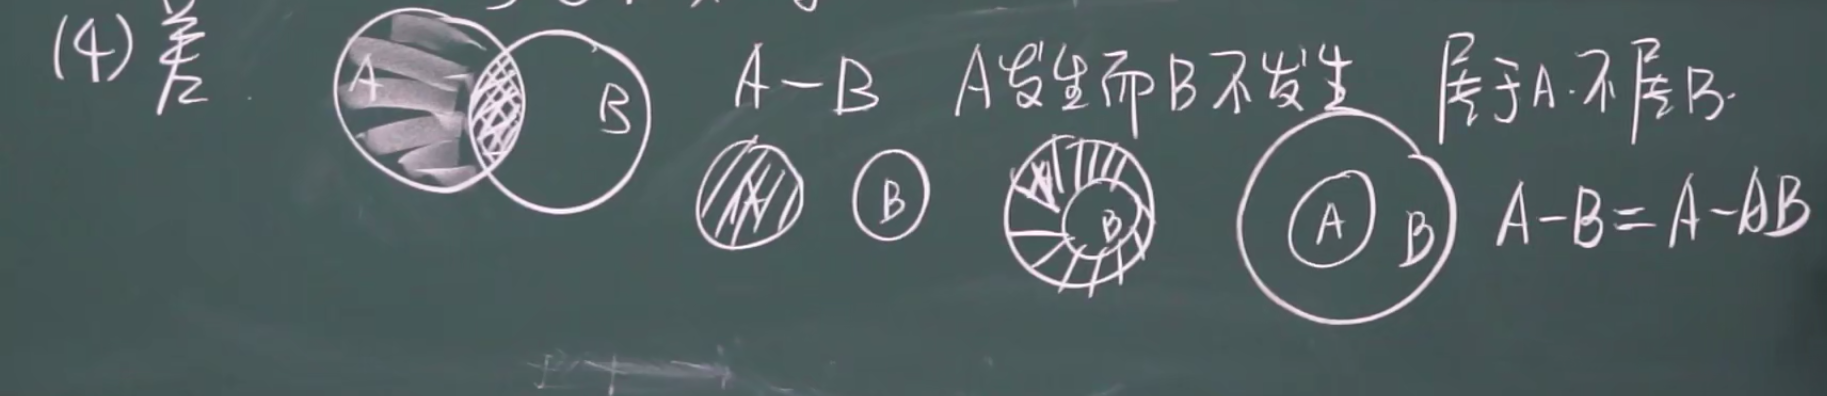 (4) 差 A B A-B A发生而B不发生 属于A.不属B.
A B A B A B A-B=A-AB